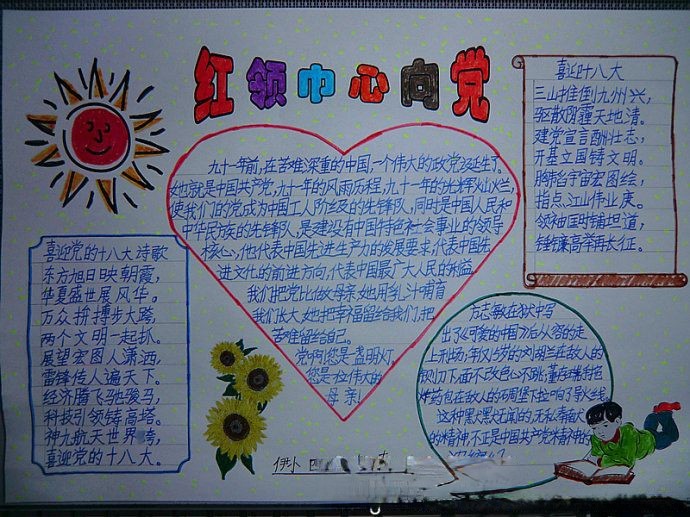 红领巾心向党
九十年前,在苦难深重的中国,一个伟大的政党诞生了。
她就是中国共产党,九十年的风雨历程,九十年的光辉灿烂,
使我们的党成为中国工人阶级的先锋队,同时是中国人民和
中华民族的先锋队,是建设有中国特色社会事业的领导
核心,他代表中国先进生产力的发展要求,代表中国先
进文化的前进方向,代表中国最广大人民的利益。
我们把党比做母亲,她用乳汁哺育
我们长大,她把幸福留给我们,把
苦难留给自己。
党啊!您是一盏明灯,
您是一位伟大的
母亲!
喜迎十八大
三山推倒九州兴,
驱散阴霾天地清。
建党宣言酬壮志,
开基立国铸文明。
胸怀宇宙宏图绘,
指点江山伟业庚。
领袖匡时铺坦道,
锤镰高举再长征。
喜迎党的十八大诗歌
东方旭日映朝霞,
华夏盛世展风华。
万众拚搏步大路,
两个文明一起抓。
展望宏图人潇洒,
雷锋传人遍天下。
经济腾飞驰骏马,
科技引领铸高塔。
神九航天世界
喜迎党的十八大。
方志敏在狱中写
出了《可爱的中国》后从容的走
上刑场;年仅15岁的刘胡兰在敌人的
铡刀下,面不改色心不跳;董存瑞托起
炸药包在敌人的碉堡下拉响了导火线。
这种
的精神不正是中国共产党精神的